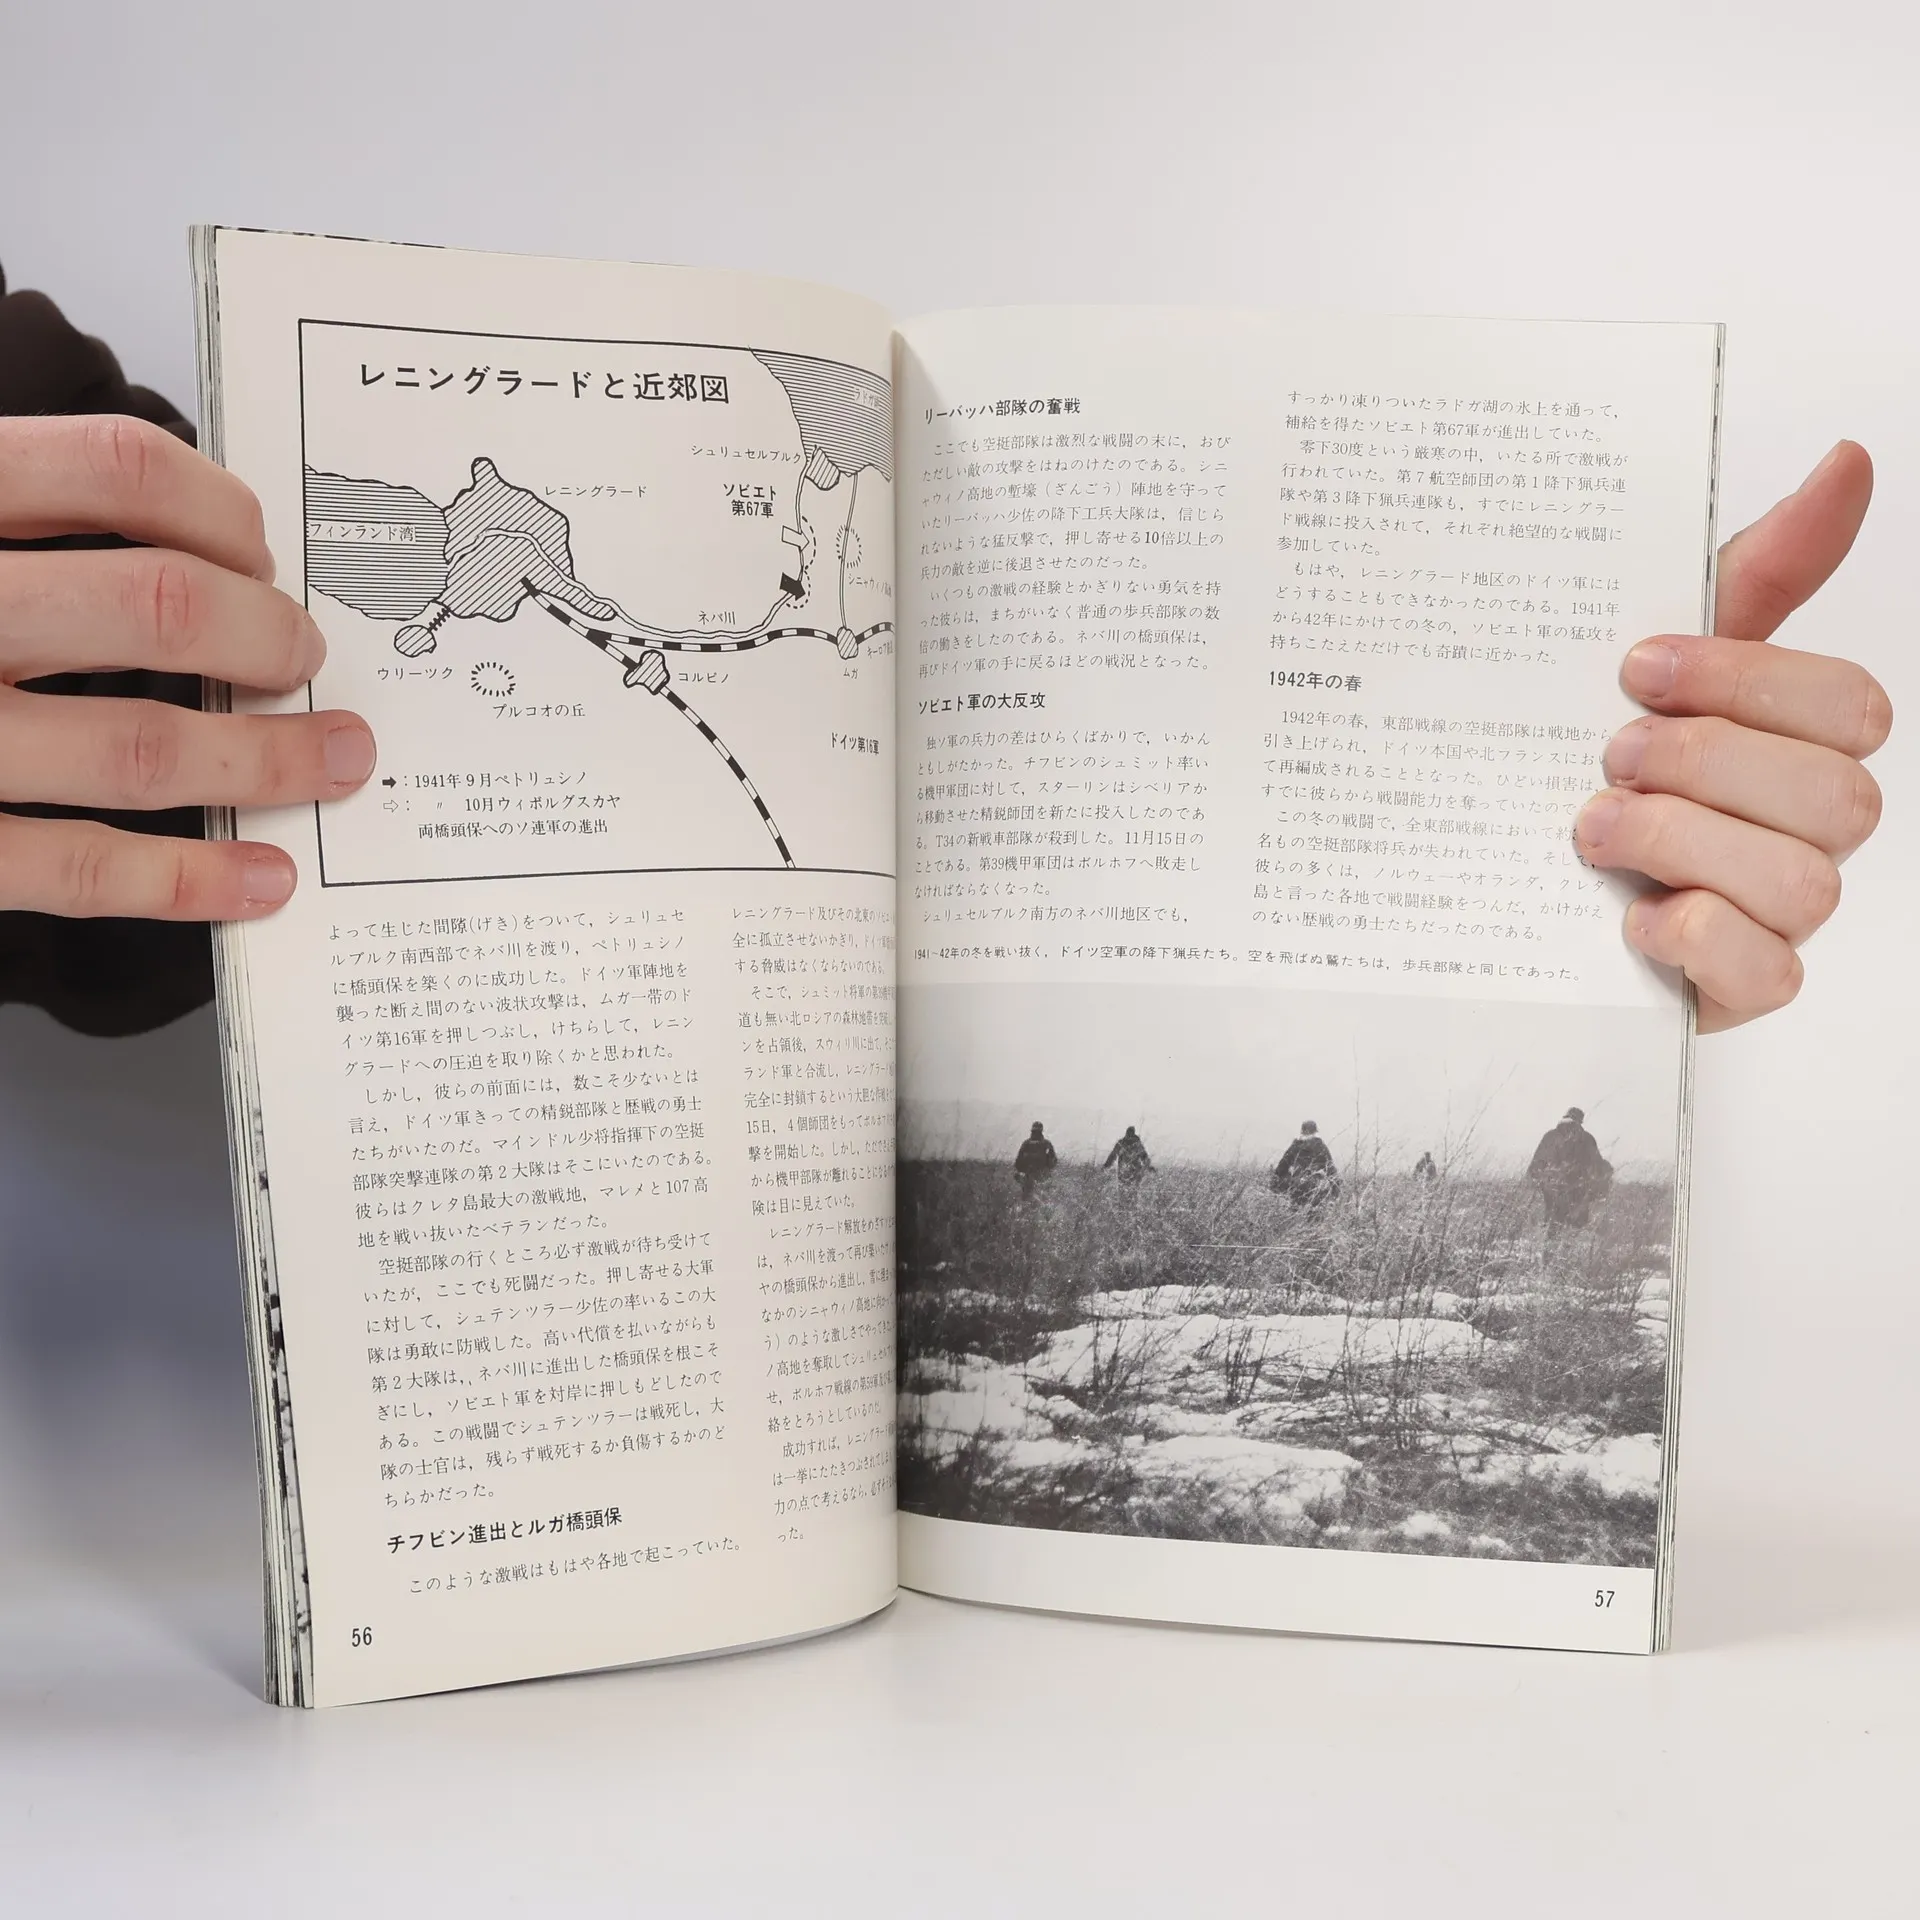 レニングラードと近郊図
シュリュセルブルク
ソビエト
第67軍
レニングラード
フィンランド湾
ネバ川
ウリーツク
プルコオの丘
コルピノ
ムガ
ドイツ第16軍
➡：1941年9月ペトリュシノ
⇨：〃 10月ウィボルグスカヤ
両橋頭保へのソ連軍の進出
よって生じた間隙(げき)をついて，シュリュセ
ルブルク南西部でネバ川を渡り，ペトリュシノ
に橋頭保を築くのに成功した。ドイツ軍陣地を
襲った断え間のない波状攻撃は，ムガ一帯のド
イツ第16軍を押しつぶし，けちらして，レニン
グラードへの圧迫を取り除くかと思われた。
しかし，彼らの前面には，数こそ少ないとは
言え，ドイツ軍きっての精鋭部隊と歴戦の勇士
たちがいたのだ。マインドル少将指揮下の空挺
部隊突撃連隊の第2大隊はそこにいたのである。
彼らはクレタ島最大の激戦地，マレメと107高
地を戦い抜いたベテランだった。
空挺部隊の行くところ必ず激戦が待ち受けて
いたが，ここでも死闘だった。押し寄せる大軍
に対して，シュテンツラー少佐の率いるこの大
隊は勇敢に防戦した。高い代償を払いながらも
第2大隊は，ネバ川に進出した橋頭保を根こそ
ぎにし，ソビエト軍を対岸に押しもどしたので
ある。この戦闘でシュテンツラーは戦死し，大
隊の士官は，残らず戦死するか負傷するかのど
ちらかだった。
チフビン進出とルガ橋頭保
このような激戦はもはや各地で起こっていた。
レニングラード及びその北東のソビエ
全に孤立させないかぎり，ドイツ軍
する脅威はなくならないのである。
そこで，シュミット将軍の第39
道も無い北ロシアの森林地帯を
ンを占領後，スウィリ川に出て，
ランド軍と合流し，レニングラード
完全に封鎖するという大胆な作戦
15日，4個師団をもってボルホフ
撃を開始した。しかし，ただでさえ
から機甲部隊が離れることになる
険は目に見えていた。
レニングラード解放をめざす
は，ネバ川を渡って再び築いた
ヤの橋頭保から進出し，
なかのシニャウィノ高地に向かって
う）のような激しさでやってきた。
ノ高地を奪取してシュリュセル
せ，ボルホフ戦線の第59軍
絡をとろうとしているのだ。
成功すれば，レニングラード
は一挙にたたきつぶされてしま
力の点で考えるなら，必ず
った。
56
リーバッハ部隊の奮戦
ここでも空挺部隊は激烈な戦闘の末に，おび
ただしい敵の攻撃をはねのけたのである。シニ
ャウィノ高地の塹壕（ざんごう）陣地を守って
いたリーバッハ少佐の降下工兵大隊は，信じら
れないような猛反撃で，押し寄せる10倍以上の
兵力の敵を逆に後退させたのだった。
いくつもの激戦の経験とかぎりない勇気を持
った彼らは，まちがいなく普通の歩兵部隊の数
倍の働きをしたのである。ネバ川の橋頭保は，
再びドイツ軍の手に戻るほどの戦況となった。
ソビエト軍の大反攻
独ソ軍の兵力の差はひらくばかりで，いかん
ともしがたかった。チフビンのシュミット率い
る機甲軍団に対して，スターリンはシベリアか
ら移動させた精鋭師団を新たに投入したのであ
る。T34の新戦車部隊が殺到した。11月15日の
ことである。第39機甲軍団はボルホフへ敗走し
なければならなくなった。
シュリュセルブルク南方のネバ川地区でも，
すっかり凍りついたラドガ湖の氷上を通って，
補給を得たソビエト第67軍が進出していた。
零下30度という厳寒の中，いたる所で激戦が
行われていた。第7航空師団の第1降下猟兵連
隊や第3降下猟兵連隊も，すでにレニングラー
ド戦線に投入されて，それぞれ絶望的な戦闘に
参加していた。
もはや，レニングラード地区のドイツ軍には
どうすることもできなかったのである。1941年
から42年にかけての冬の，ソビエト軍の猛攻を
持ちこたえただけでも奇蹟に近かった。
1942年の春
1942年の春，東部戦線の空挺部隊は戦地から
引き上げられ，ドイツ本国や北フランスにおい
て再編成されることとなった。ひどい損害は，
すでに彼らから戦闘能力を奪っていたので
この冬の戦闘で，全東部戦線において約
名もの空挺部隊将兵が失われていた。そして，
彼らの多くは，ノルウェーやオランダ，クレタ
島と言った各地で戦闘経験をつんだ，かけがえ
のない歴戦の勇士たちだったのである。
1941～42年の冬を戦い抜く，ドイツ空軍の降下猟兵たち。空を飛ばぬ鷲たちは，歩兵部隊と同じであった。
57